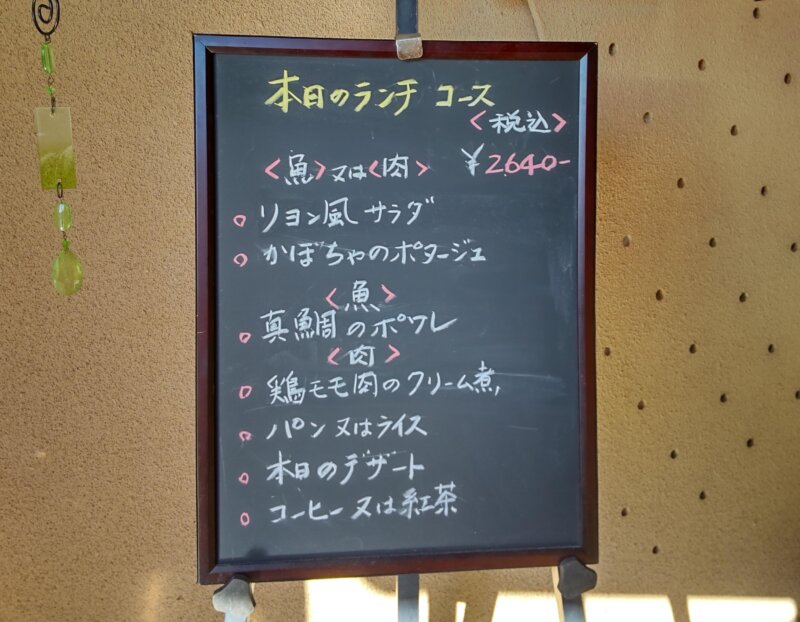 本日のランチ コース
<税込>
<魚>又は<肉> ¥2640-
○リヨン風サラダ
○かぼちゃのポタージュ
<魚>
○真鯛のポワレ
<肉>
○鶏モモ肉のクリーム煮,
○パン又はライス
○本日のデザート
○コーヒー又は紅茶